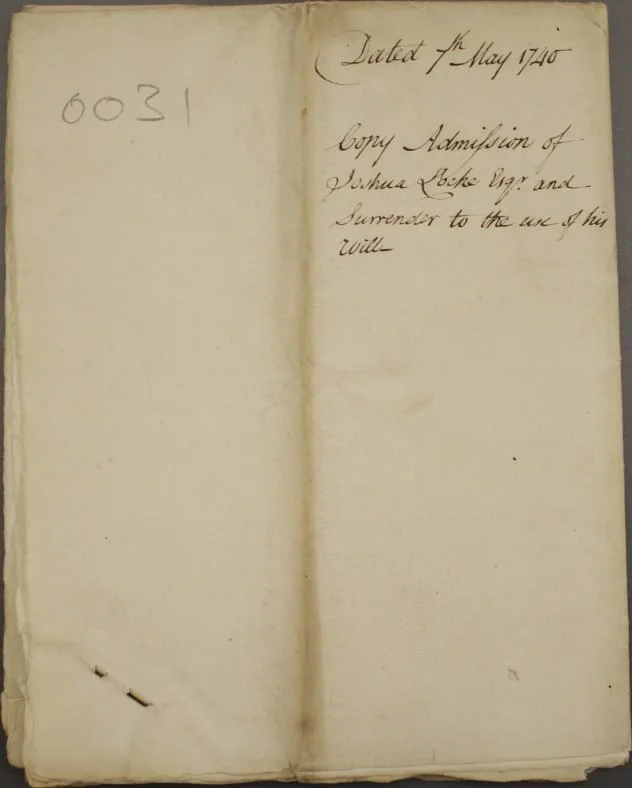 0031
Dated 7th May 1740
Copy Admiſsion of
Joshua Locke Esqr. and
Surrender to the use of his
Will